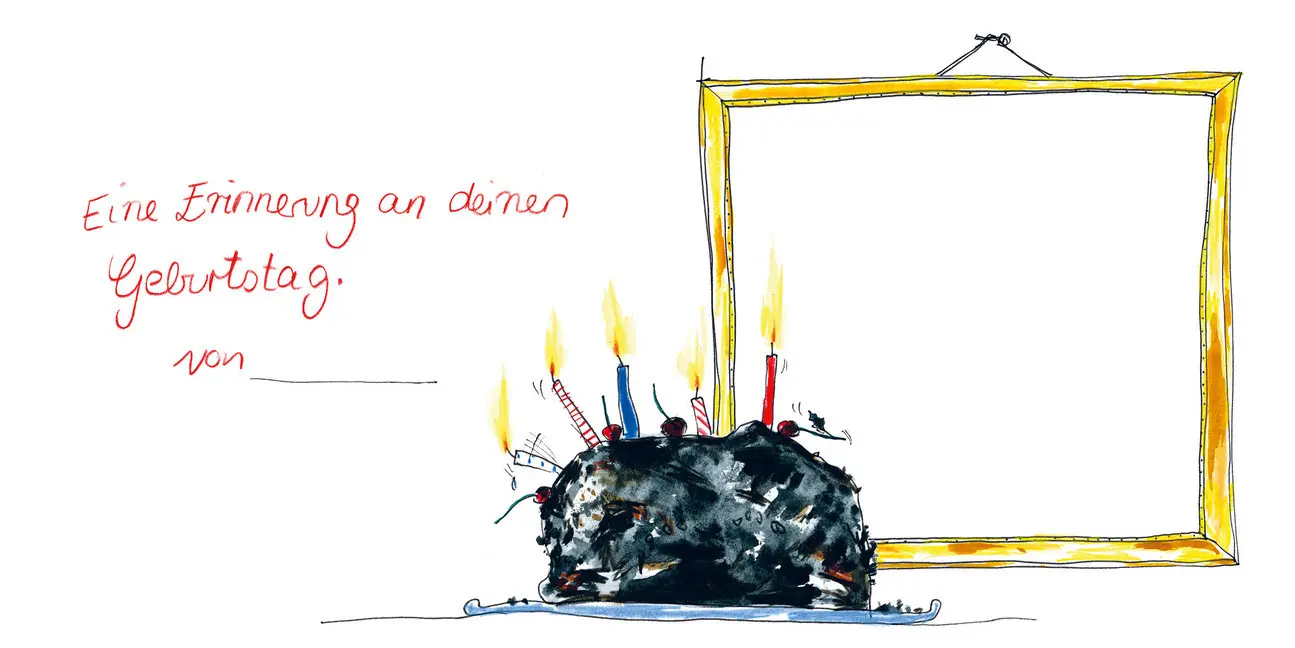 Eine Erinnerung an deinen
Geburtstag.
von